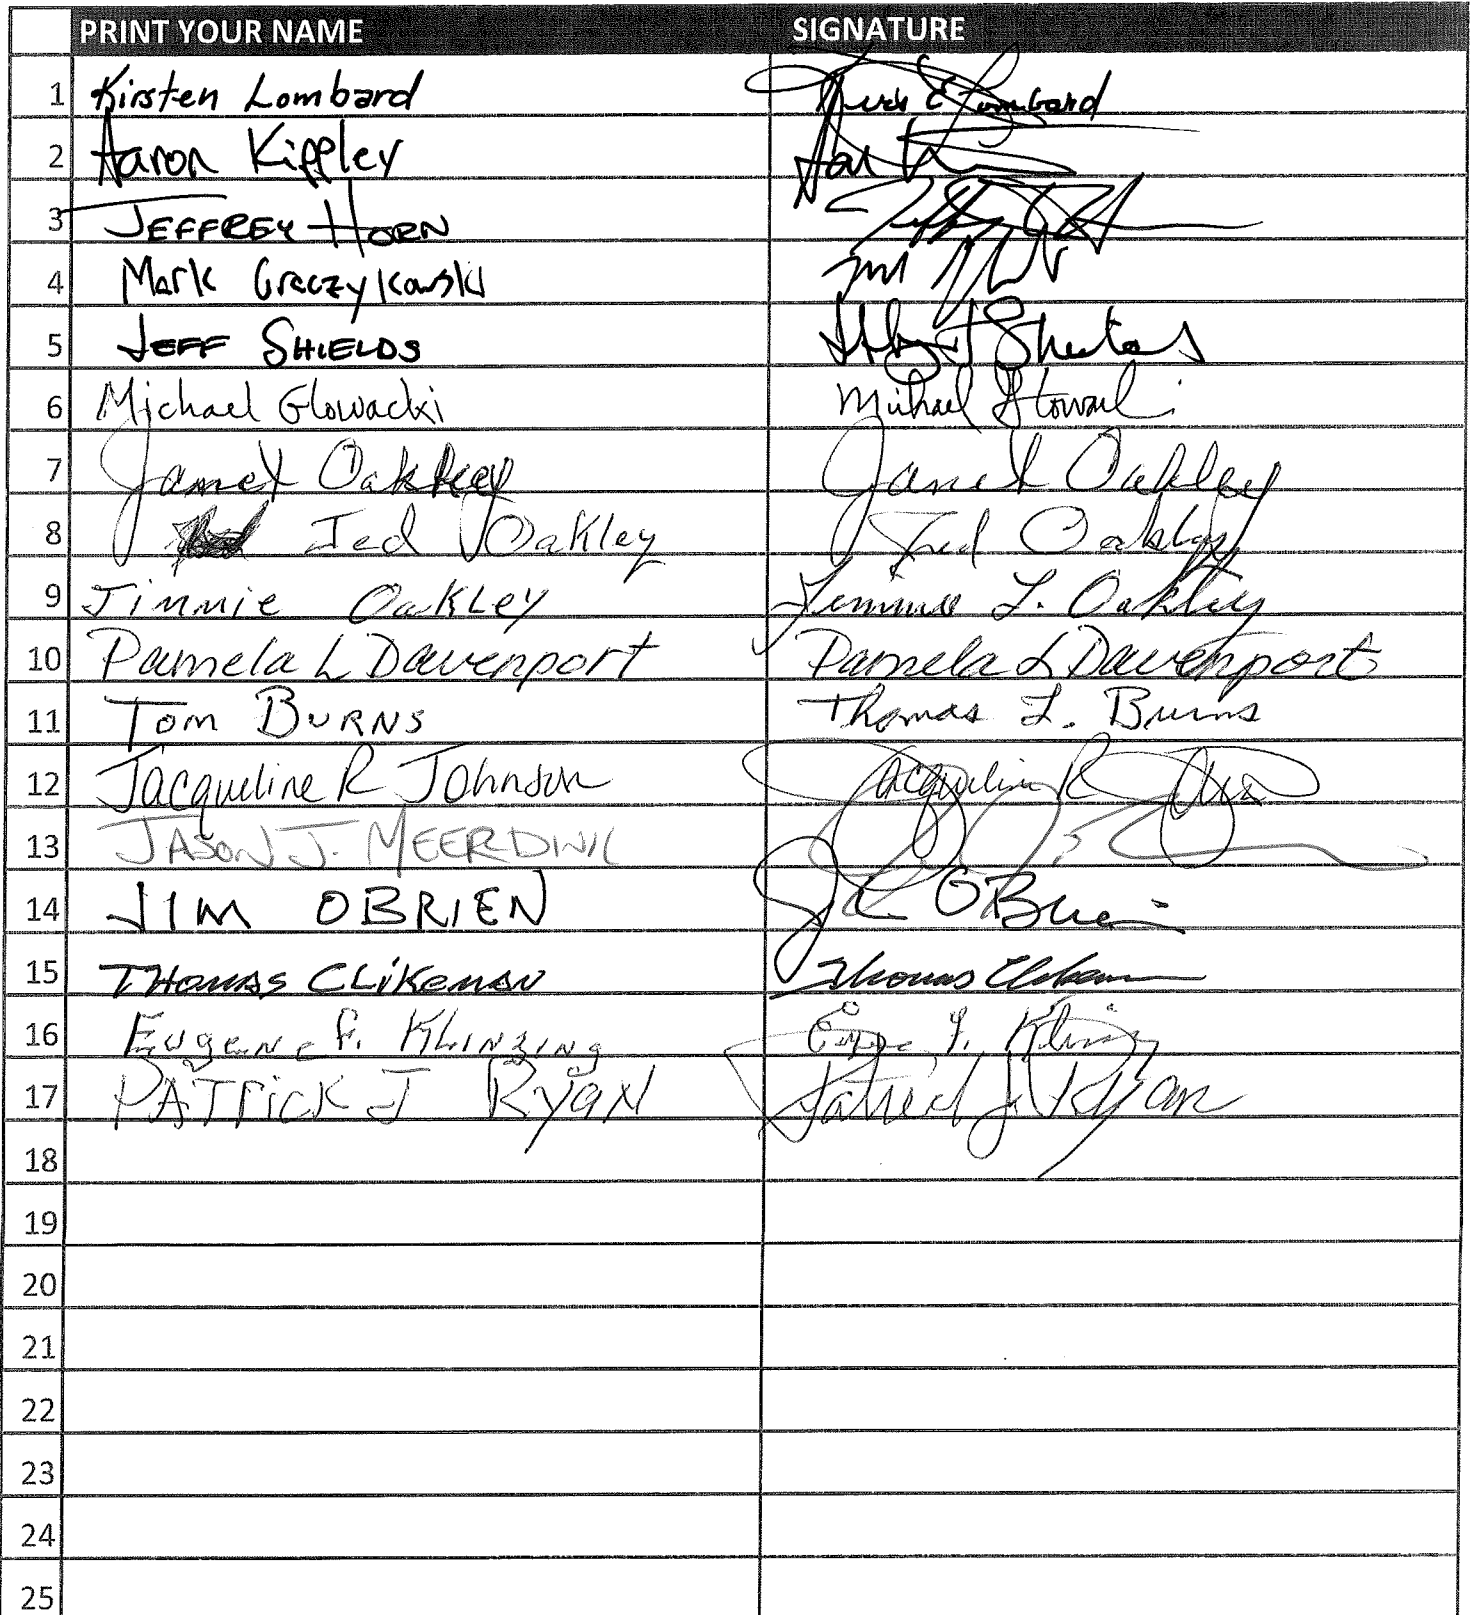 PRINT YOUR NAME SIGNATURE
1 Kirsten Lombard Lombard
2 Aaron Kippley
3 JEFFREY HORN
4 Mark Graczykowski
5 JEFF SHIELDS
6 Michael Glowacki Michael
7 Janet Oakley Janet Oakley
8 Ted Oakley Ted Oakley
9 Jimmie Oakley Jimmie L. Oakley
10 Pamela L Davenport Pamela L Davenport
11 Tom BURNS Thomas L. Burns
12 Jacqueline R Johnson Jacqueline R
13 JASON J. MEERDINK
14 JIM OBRIEN OBrien
15 THOMAS CLIKEMAN Thomas Clikeman
16 EUGENE F. KLINZING
17 PATRICK J RYAN Patrick J. Ryan
18
19
20
21
22
23
24
25